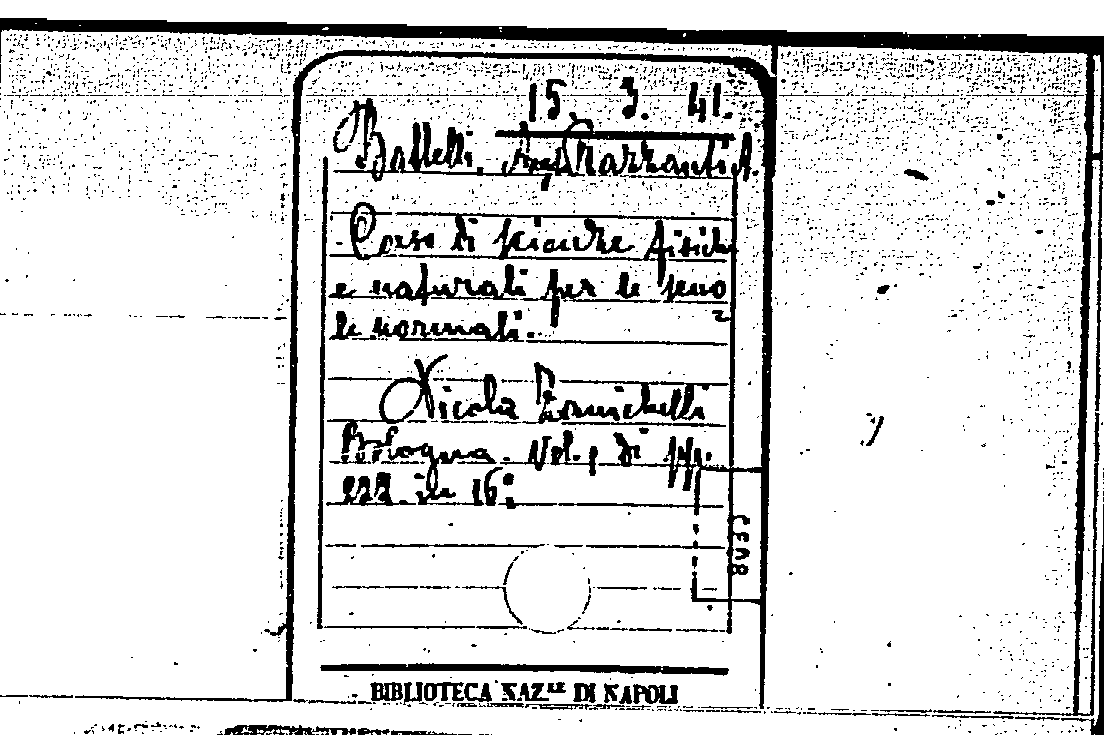 15. 3. 41.
Battelli. Marzanti A.
- Corso di scienze fisiche
e naturali per le scuo
le normali.
Nicola Zanichelli
Bologna. Vol. 1 di pp.
222. in 16º
BIBLIOTECA NAZ.LE DI NAPOLI